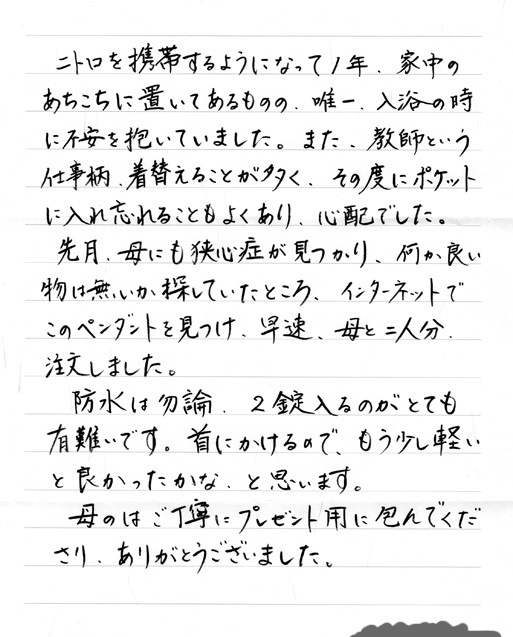 ニトロを携帯するようになって1年、家中の
あちこちに置いてあるものの、唯一、入浴の時
に不安を抱いていました。また、教師という
仕事柄、着替えることが多く、その度にポケット
に入れ忘れることもよくあり、心配でした。
先月、母にも狭心症が見つかり、何か良い
物は無いか探していたところ、インターネットで
このペンダントを見つけ、早速、母と二人分、
注文しました。
防水は勿論、2錠入るのがとても
有難いです。首にかけるので、もう少し軽い
と良かったかな、と思います。
母のはご丁寧にプレゼント用に包んでくだ
さり、ありがとうございました。